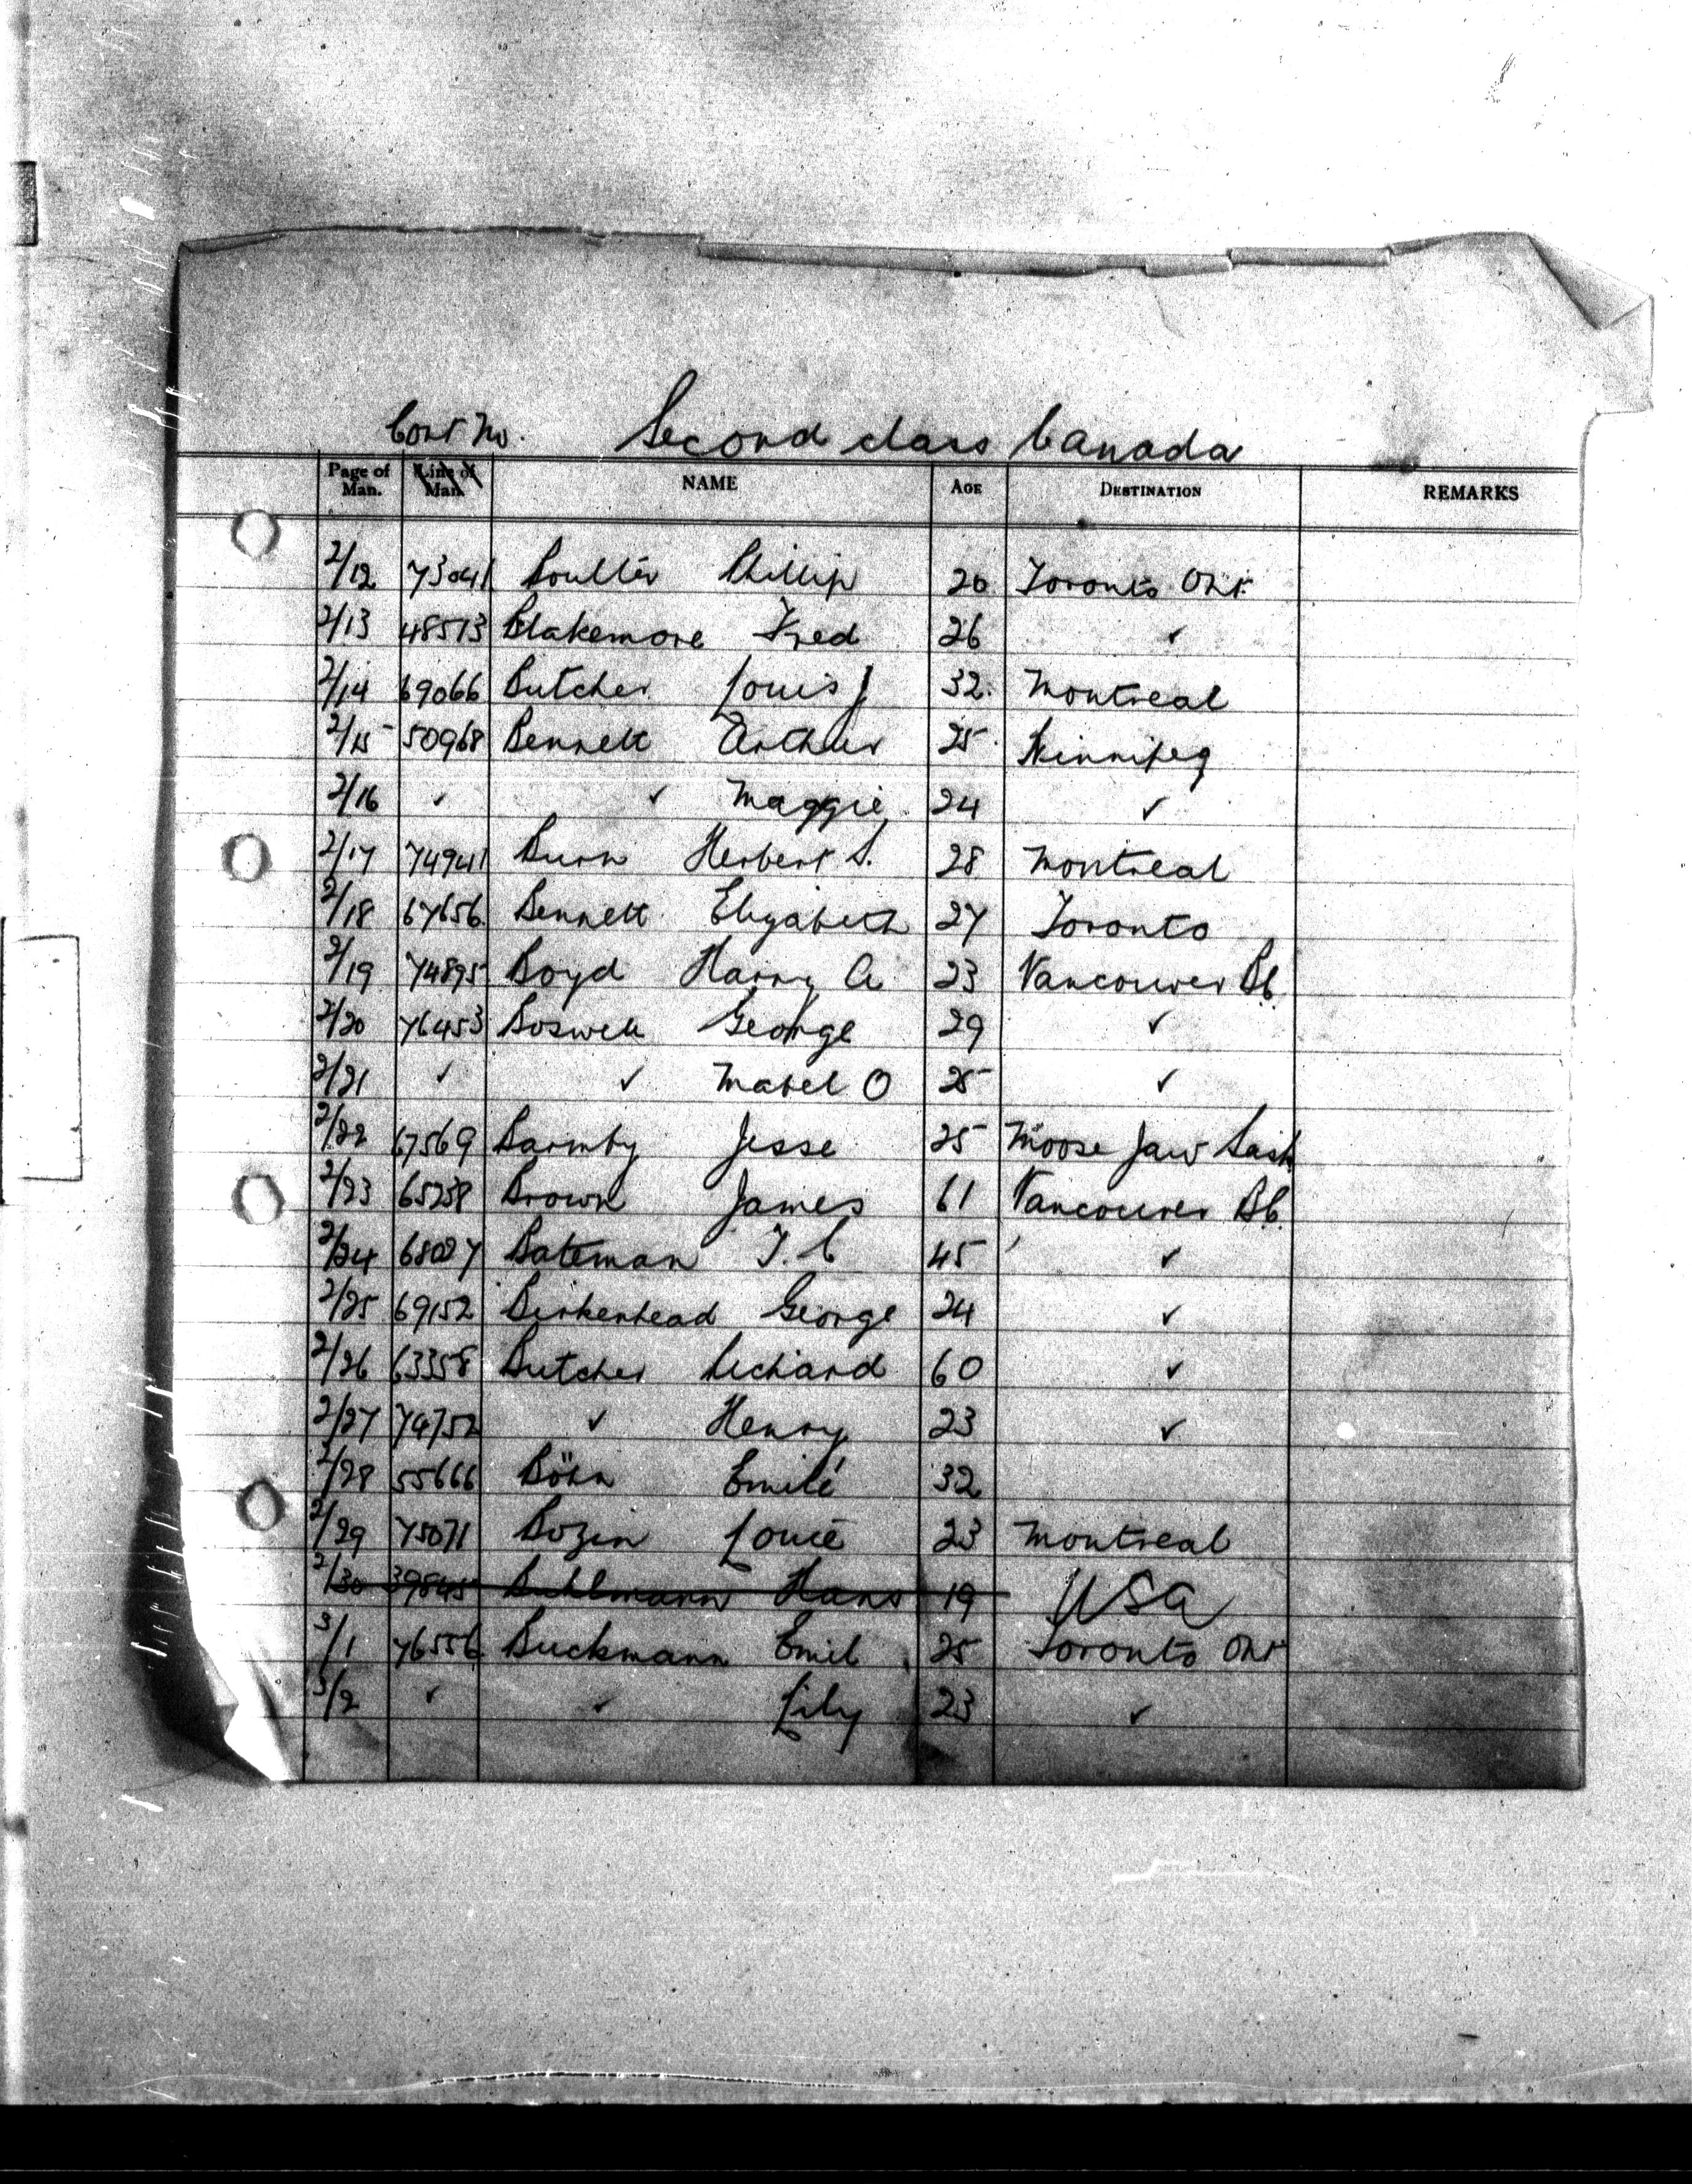 Cont No. Second class Canada
Page of Man. Line of Man NAME AGE DESTINATION REMARKS
2/12 73041 Boulter Phillip 26 Toronto Ont.
2/13 48513 Blakemore Fred 26 ✓
2/14 69066 Butcher Louis J 32. Montreal
2/15 50968 Bennett Arthur 25. Winnipeg
2/16 ✓ ✓ Maggie 24 ✓
2/17 74941 Burn Herbert S. 28 Montreal
2/18 67656 Bennett Elizabeth 27 Toronto
2/19 74895 Boyd Harry A 23 Vancouver BC.
2/20 76453 Boswell George 29 ✓
2/21 ✓ ✓ Mabel O 25 ✓
2/22 67569 Barmby Jesse 25 Moose Jaw Sask
2/23 65238 Brown James 61 Vancouver BC.
2/24 68027 Bateman T. C 45 ✓
2/25 69152 Birkenhead George 24 ✓
2/26 63358 Butcher Richard 60 ✓
2/27 74752 ✓ Henry 23 ✓
2/28 55666 Böhn Emilé 32
2/29 75071 Bozin Louie 23 Montreal
2/30 39845 Buhlmann Hans 19 USA
3/1 76556 Buckmann Emil 25 Toronto Ont
3/2 ✓ ✓ Lily 23 ✓